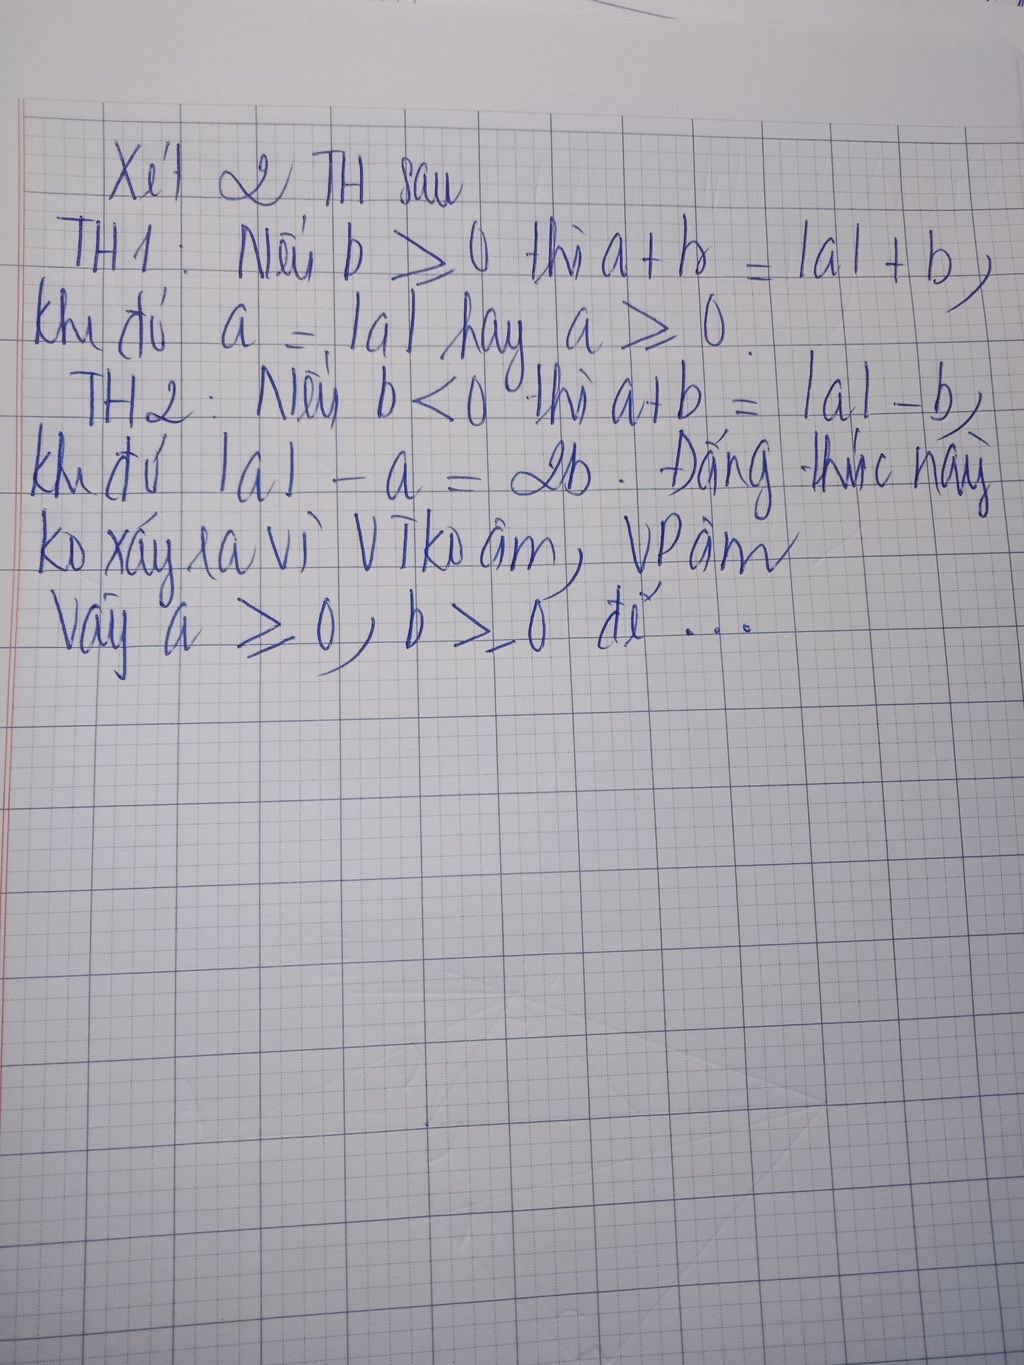 Xét 2 TH sau
TH1: Nếu b ⩾ 0 thì a + b = |a| + b,
khi đó a = |a| hay a ⩾ 0.
TH2: Nếu b < 0 thì a + b = |a| - b,
khi đó |a| - a = 2b. Đẳng thức này
ko xảy ra vì VT ko âm, VP âm
Vậy a ⩾ 0, b ⩾ 0 để ...